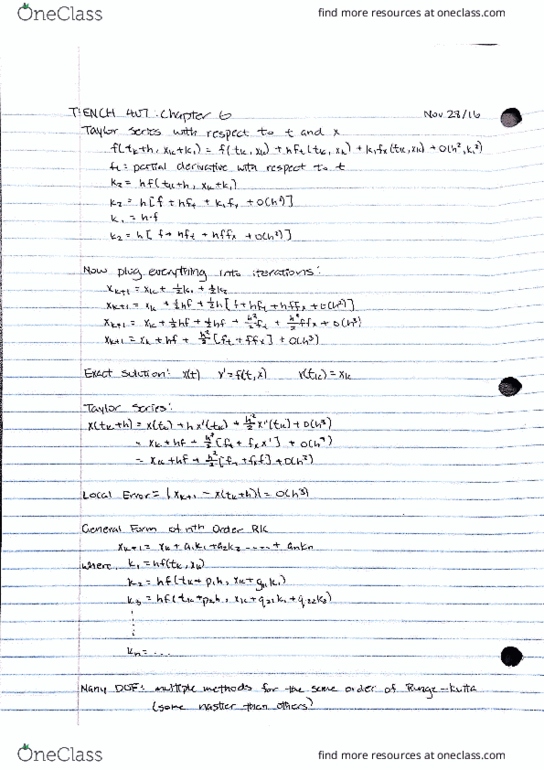 OneClass
find more resources at oneclass.com
Chapter 6
Nov 28/16
Taylor series with respect to t and x
f(tk+h, xk+k₁) = f(tk, xk) + hft(tk, xk) + k₁fx(tk, xk) + O(h², k₁²)
ft = partial derivative with respect to t
k₂ = hf(tk+h, xk+k₁)
k₂ = h[f + hft + k₁fx + O(h²)]
k₁ = h·f
k₂ = h[f + hft + hffx + O(h²)]
Now plug everything into iterations:
xk+1 = xk + ½k₁ + ½k₂
xk+1 = xk + ½hf + ½h[f + hft + hffx + O(h²)]
xk+1 = xk + ½hf + ½hf + h²/2 ft + h²/2 ffx + O(h³)
xk+1 = xk + hf + h²/2 [ft + ffx] + O(h³)
Exact Solution: x(t) x' = f(t,x) x(tk) = xk
Taylor Series:
x(tk+h) = x(tk) + hx'(tk) + h²/2 x''(tk) + O(h³)
= xk + hf + h²/2 [ft + fx x'] + O(h³)
= xk + hf + h²/2 [ft + fxf] + O(h³)
Local Error = |xk+1 - x(tk+h)| = O(h³)
General Form of nth Order RK
xk+1 = xk + a₁k₁ + a₂k₂ ..... + ankn
where, k₁ = hf(tk, xk)
k₂ = hf(tk + p₁h, xk + q₁₁k₁)
k₃ = hf(tk + p₂h, xk + q₂₁k₁ + q₂₂k₂)
kn = ....
Many DOF: multiple methods for the same order of Runge-Kutta
(some nastier than others)
OneClass
find more resources at oneclass.com